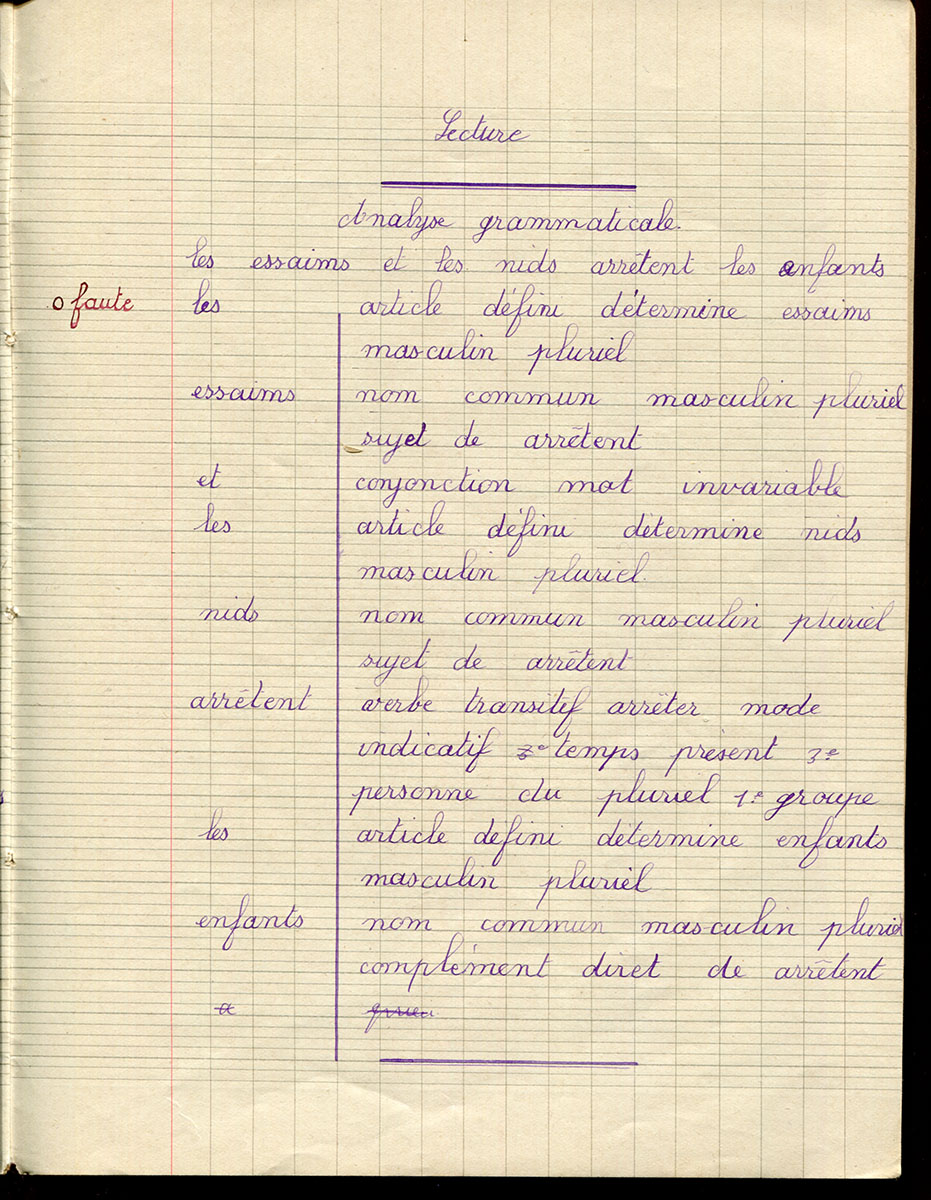 Lecture
Analyse grammaticale.
les essaims et les nids arrêtent les enfants
0 faute les article défini détermine essaims
masculin pluriel
essaims nom commun masculin pluriel
sujet de arrêtent
et conjonction mot invariable
les article défini détermine nids
masculin pluriel.
nids nom commun masculin pluriel
sujet de arrêtent
arrêtent verbe transitif arrêter mode
indicatif 3e temps présent 3e
personne du pluriel 1e groupe
les article défini détermine enfants
masculin pluriel
enfants nom commun masculin pluriel
complément diret de arrêtent
a